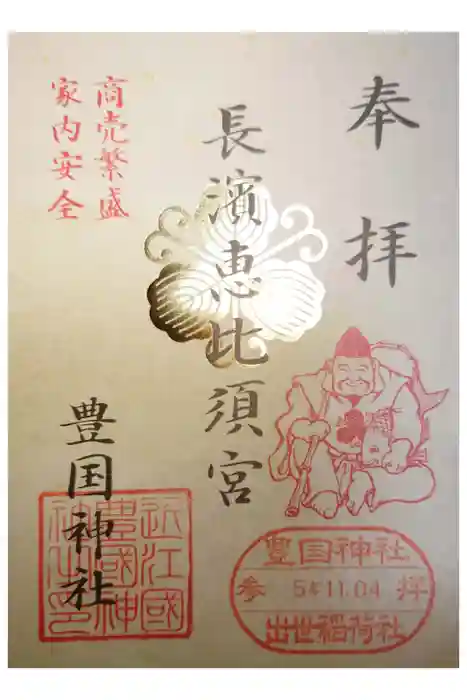 奉拝
長濱恵比須宮
商売繁盛
家内安全
豊国神社
近江國
豊國神
社之印
豊国神社
参 5年11.04 拝
出世稲荷社